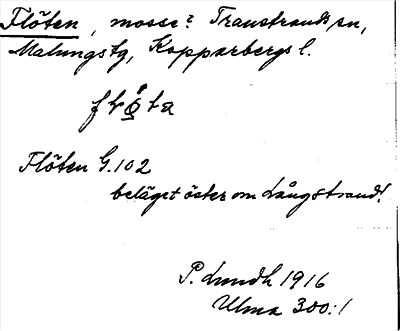 Flöten, mosse? Transtrands sn,
Malungs tg, Kopparbergs l.
Flöten G.102
beläget öster om Långstrand!
P. Lundh 1916
Ulma 300:1